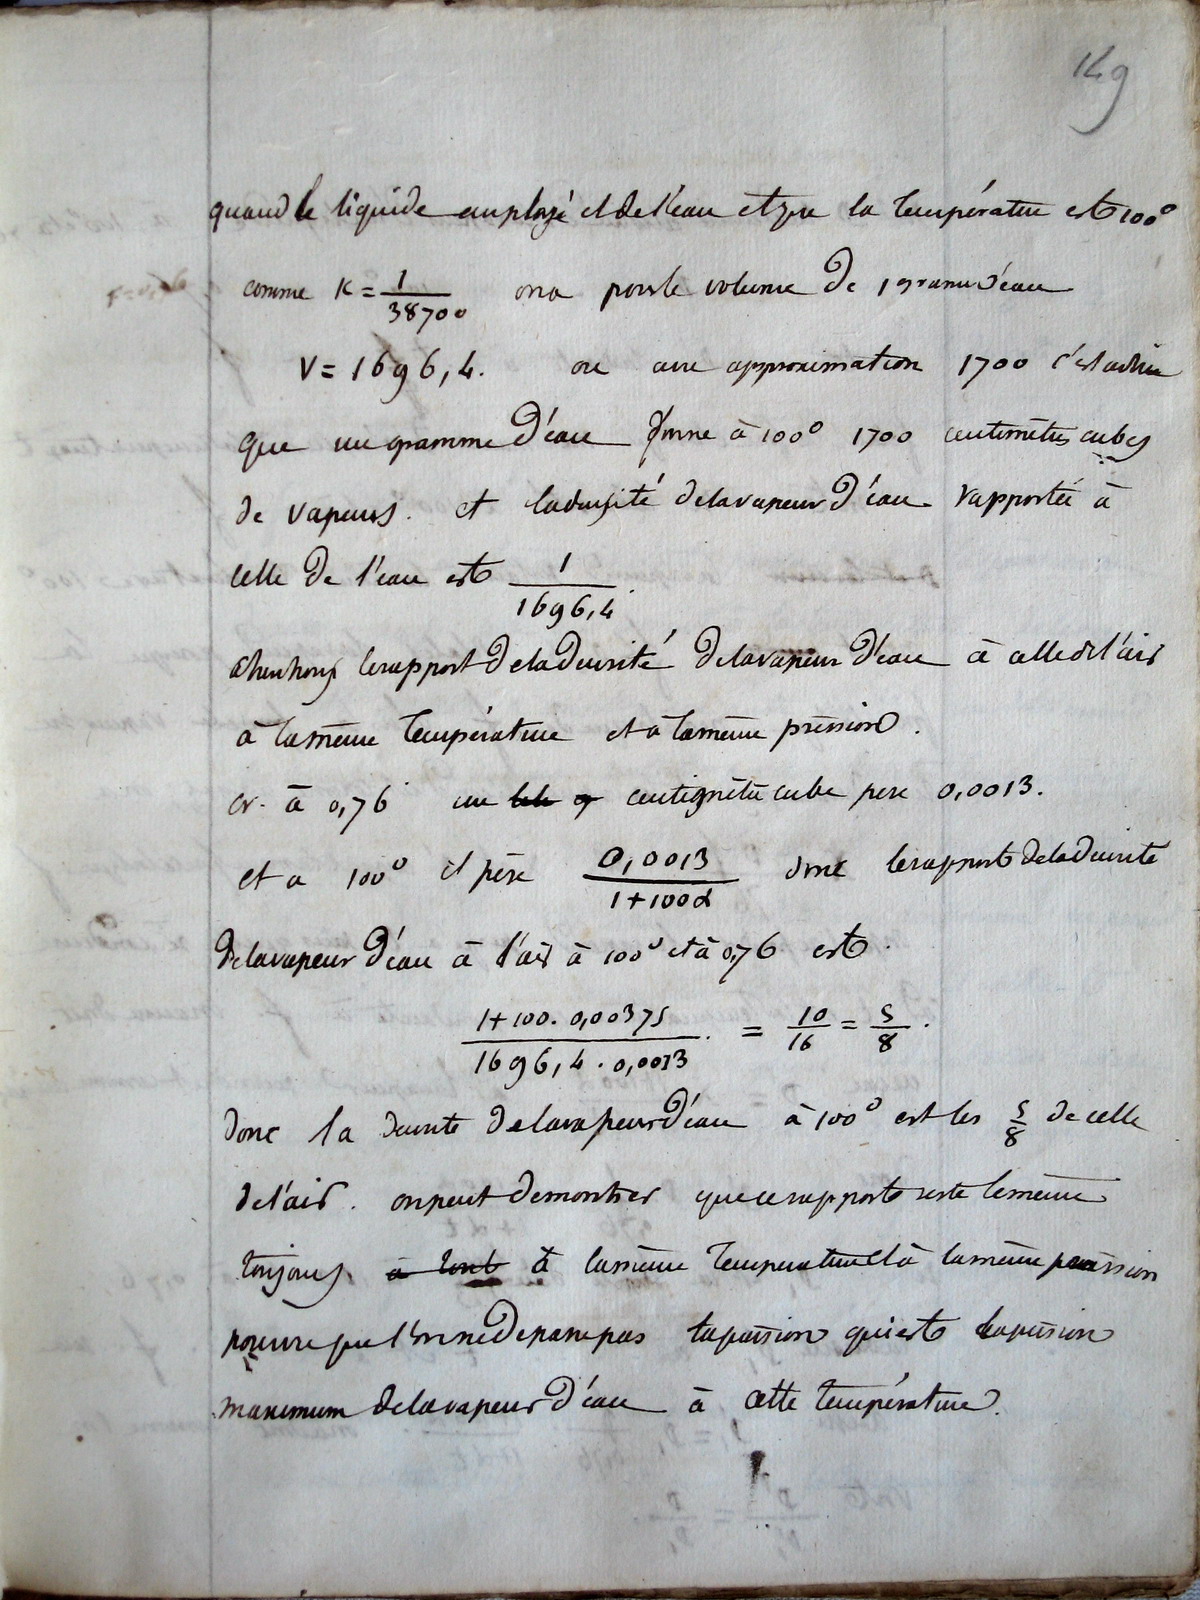 149
quand le liquide employé est de l'eau et que la température est 100°
comme K = 1/38700 on a pour le volume de 1 gramme d'eau
V = 1696,4. ou avec approximation 1700 c'est à dire
que un gramme d'eau donne à 100° 1700 centimètres cubes
de vapeurs. et la densité de la vapeur d'eau rapportée à
celle de l'eau est 1/1696,4.
cherchons le rapport de la densité de la vapeur d'eau à celle de l'air
à la même température et à la même pression.
or à 0,76 un centimètre cube pèse 0,0013.
et a 100° il pèse 0,0013/1+100α donc le rapport de la densité
de la vapeur d'eau à l'air à 100° et à 0,76 est.
1+100.0,00375/1696,4.0,0013. = 10/16 = 5/8.
donc la densité de la vapeur d'eau à 100° est les 5/8 de celle
de l'air. on peut demontrer que ce rapport reste le même
toujours à tout à la même température et à la même pression
pourvu que l'on ne depasse pas la pression qui est la pression
maximum de la vapeur d'eau à cette température.